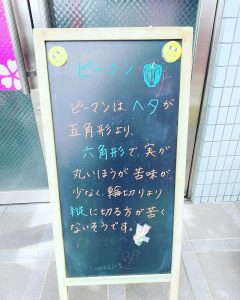 ピーマン
ピーマンは、ヘタが
五角形より、
六角形で、実が
丸いほうが苦味が
少なく、輪切りより
縦に切る方が苦く
ないそうです。